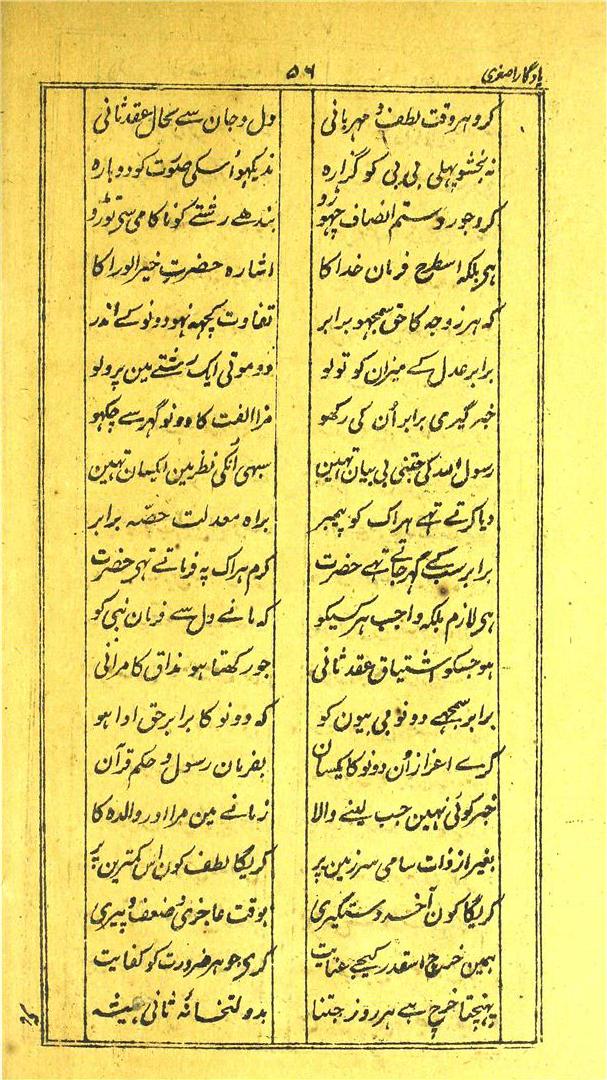 یادگار اصغری
۵۶
کرو ہر وقت لطف و مہربانی دل و جان سے بحال عقد ثانی
نہ بخشو پہلی بی بی کو گزارہ ندیکہو اُسکی صورت کو دوبارہ
کرو جور و ستم انصاف چہوڑو بندھے رشتے کو ناکامی سے توڑو
ہی بلکہ اسطرح فرمان خدا کا اشارہ حضرتِ خیر الورا کا
کہ ہر زوجہ کا حق سمجہو برابر تفاوت کچہہ نہو دونو کے اندر
برابر عدل کے میزان کو تولو دو موتی ایک رشتے مین پرولو
خبر گیری برابر اُن کی رکھو مزا الفت کا دونو گہر سے چکہو
رسول اللہ کی جتنی بی بیان تہین سبھی اُنکی نظر مین ایکسان تہین
دیا کرتے تہے ہر اک کو پیمبر براہ معدلت حصّہ برابر
برابر سب کے گہر جاتے تہے حضرت کرم ہر اک پہ فرماتے تہی حضرت
ہی لازم بلکہ واجب ہر کسیکو کہ مانے دل سے فرمان نبی کو
ہو جسکو اشتیاق عقد ثانی جو رکھتا ہو مذاق کامرانی
برابر سمجہے دونو بی بیون کو کہ دونو کا برابر حق ادا ہو
کرے اعزاز اُن دونو کا یکسان بفرمان رسول و حکم قرآن
خبر کوئی نہین جب لینے والا زمانے مین مرا اور والدہ کا
بغیر از ذات سامی سرزمین پر کریگا لطف کون اس کمترین پر
کریگا کون آخر دستگیری بوقت عاجزی و ضعف و پیری
ہمین خرچ اسقدر کیجے عنایت کری جو ہر ضرورت کو کفایت
پہنچتا خرچ ہے ہر روز جتنا بدولتخانۂ ثانی ہمیشہ